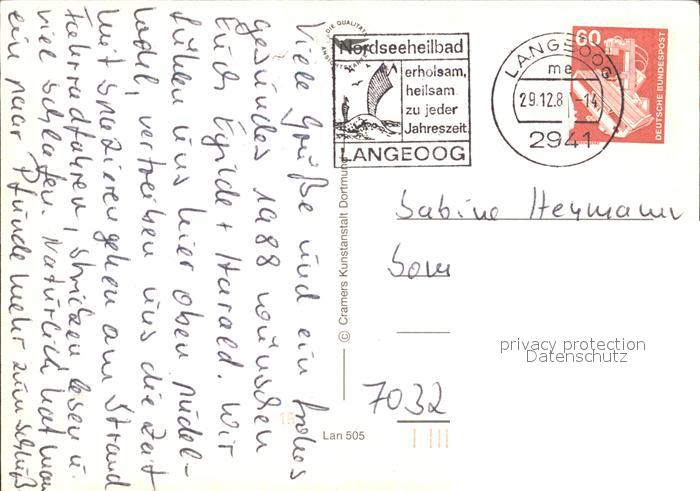 Viele Grüße und ein frohes
gesundes 1988 wünschen
Euch Egilde + Harald. Wir
fühlen uns hier oben pudel-
wohl, vertreiben uns die Zeit
mit spazierengehen am Strand
Fahrradfahren, stricken lesen u.
viel schlafen. Natürlich hat man
ein paar Pfunde mehr zum Schluß
DIE QUALITÄTS
ANSICHTSKARTE
Nordseeheilbad
erholsam,
heilsam
zu jeder
Jahreszeit
LANGEOOG
LANGEOOG
me
29.12.8 -14
2941
60
DEUTSCHE BUNDESPOST
© Cramers Kunstanstalt Dortmund
Sabine Heymann
7032
privacy protection
Datenschutz
15
Lan 505